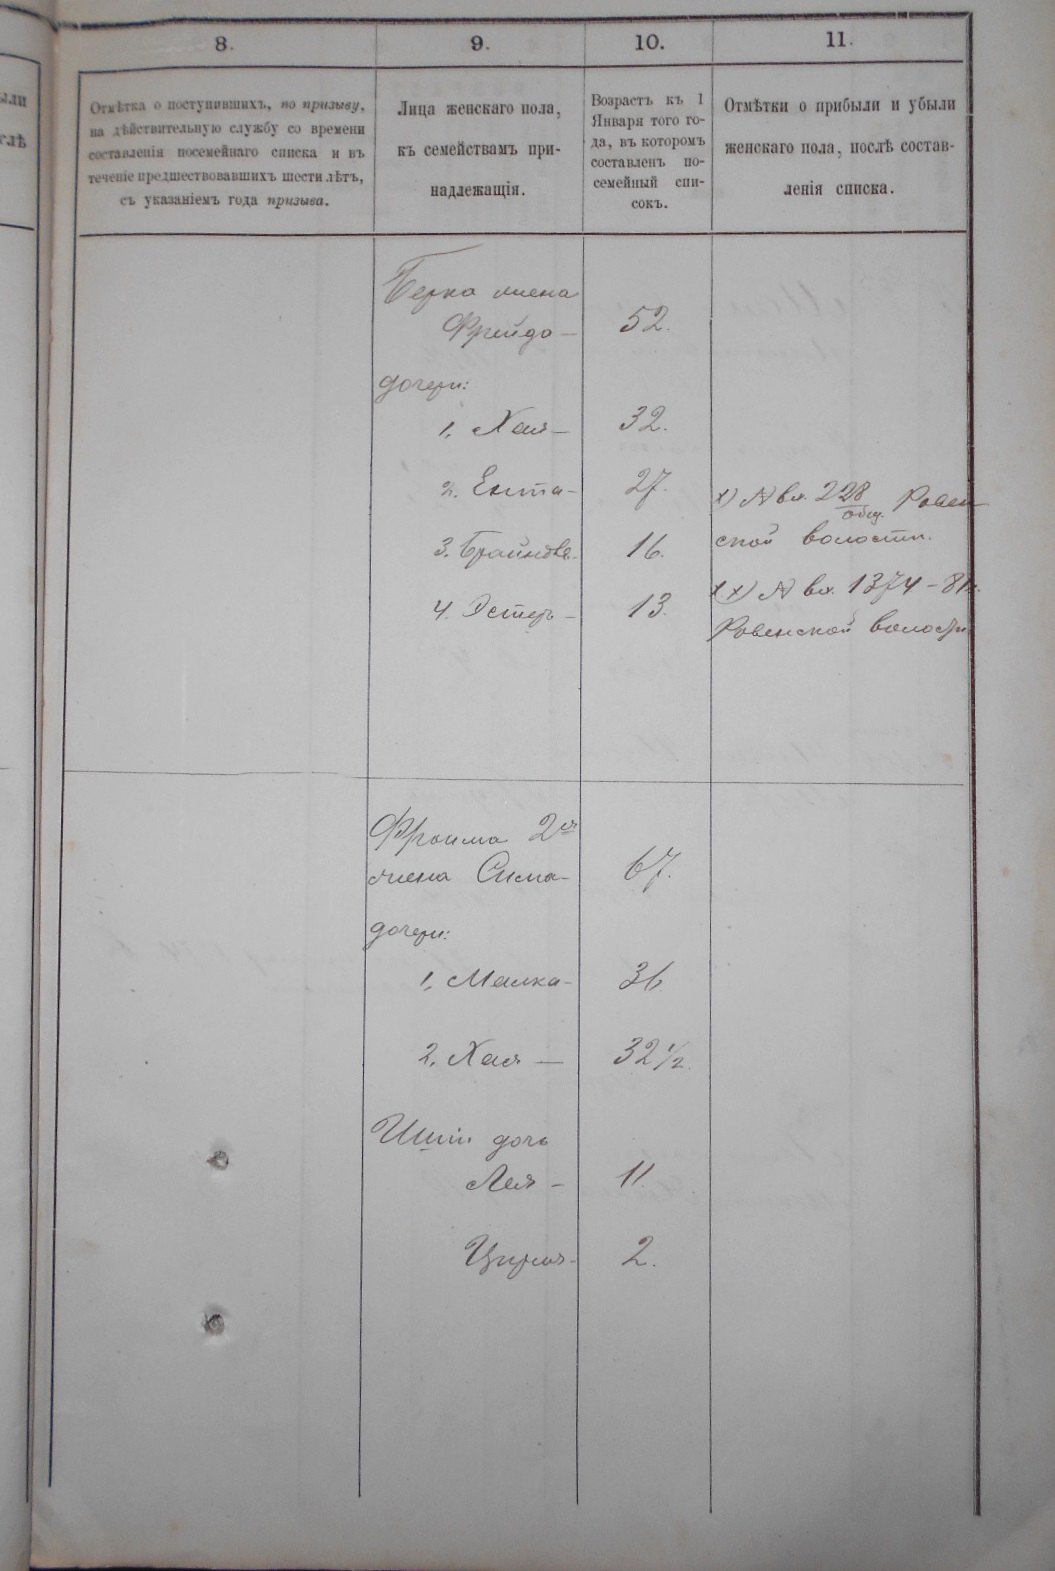 ыли
слѣ
8.
9.
10.
11.
Отмѣтка о поступившихъ, по призыву,
на дѣйствительную службу со времени
составленія посемейнаго списка и въ
теченіе предшествовавшихъ шести лѣтъ,
съ указаніемъ года призыва.
Лица женскаго пола,
къ семействамъ при-
надлежащія.
Возрастъ къ 1
Января того го-
да, въ которомъ
составленъ по-
семейный спи-
сокъ.
Отмѣтки о прибыли и убыли
женскаго пола, послѣ состав-
ленія списка.
Берка жена
Фрейда — 52.
дочери:
1. Хая — 32.
2. Ента - 27.
3. Брайндля - 16.
4. Эстеръ - 13.
х) 228 Ровен
общ.
ской волости.
хх) 1374 - 81
Ровенской волости
Фроима 2я
жена Сима - 67.
дочери:
1. Малка - 36
2. Хая — 32 1/2.
Шиіи дочь
Лея - 11.
Цирля - 2.